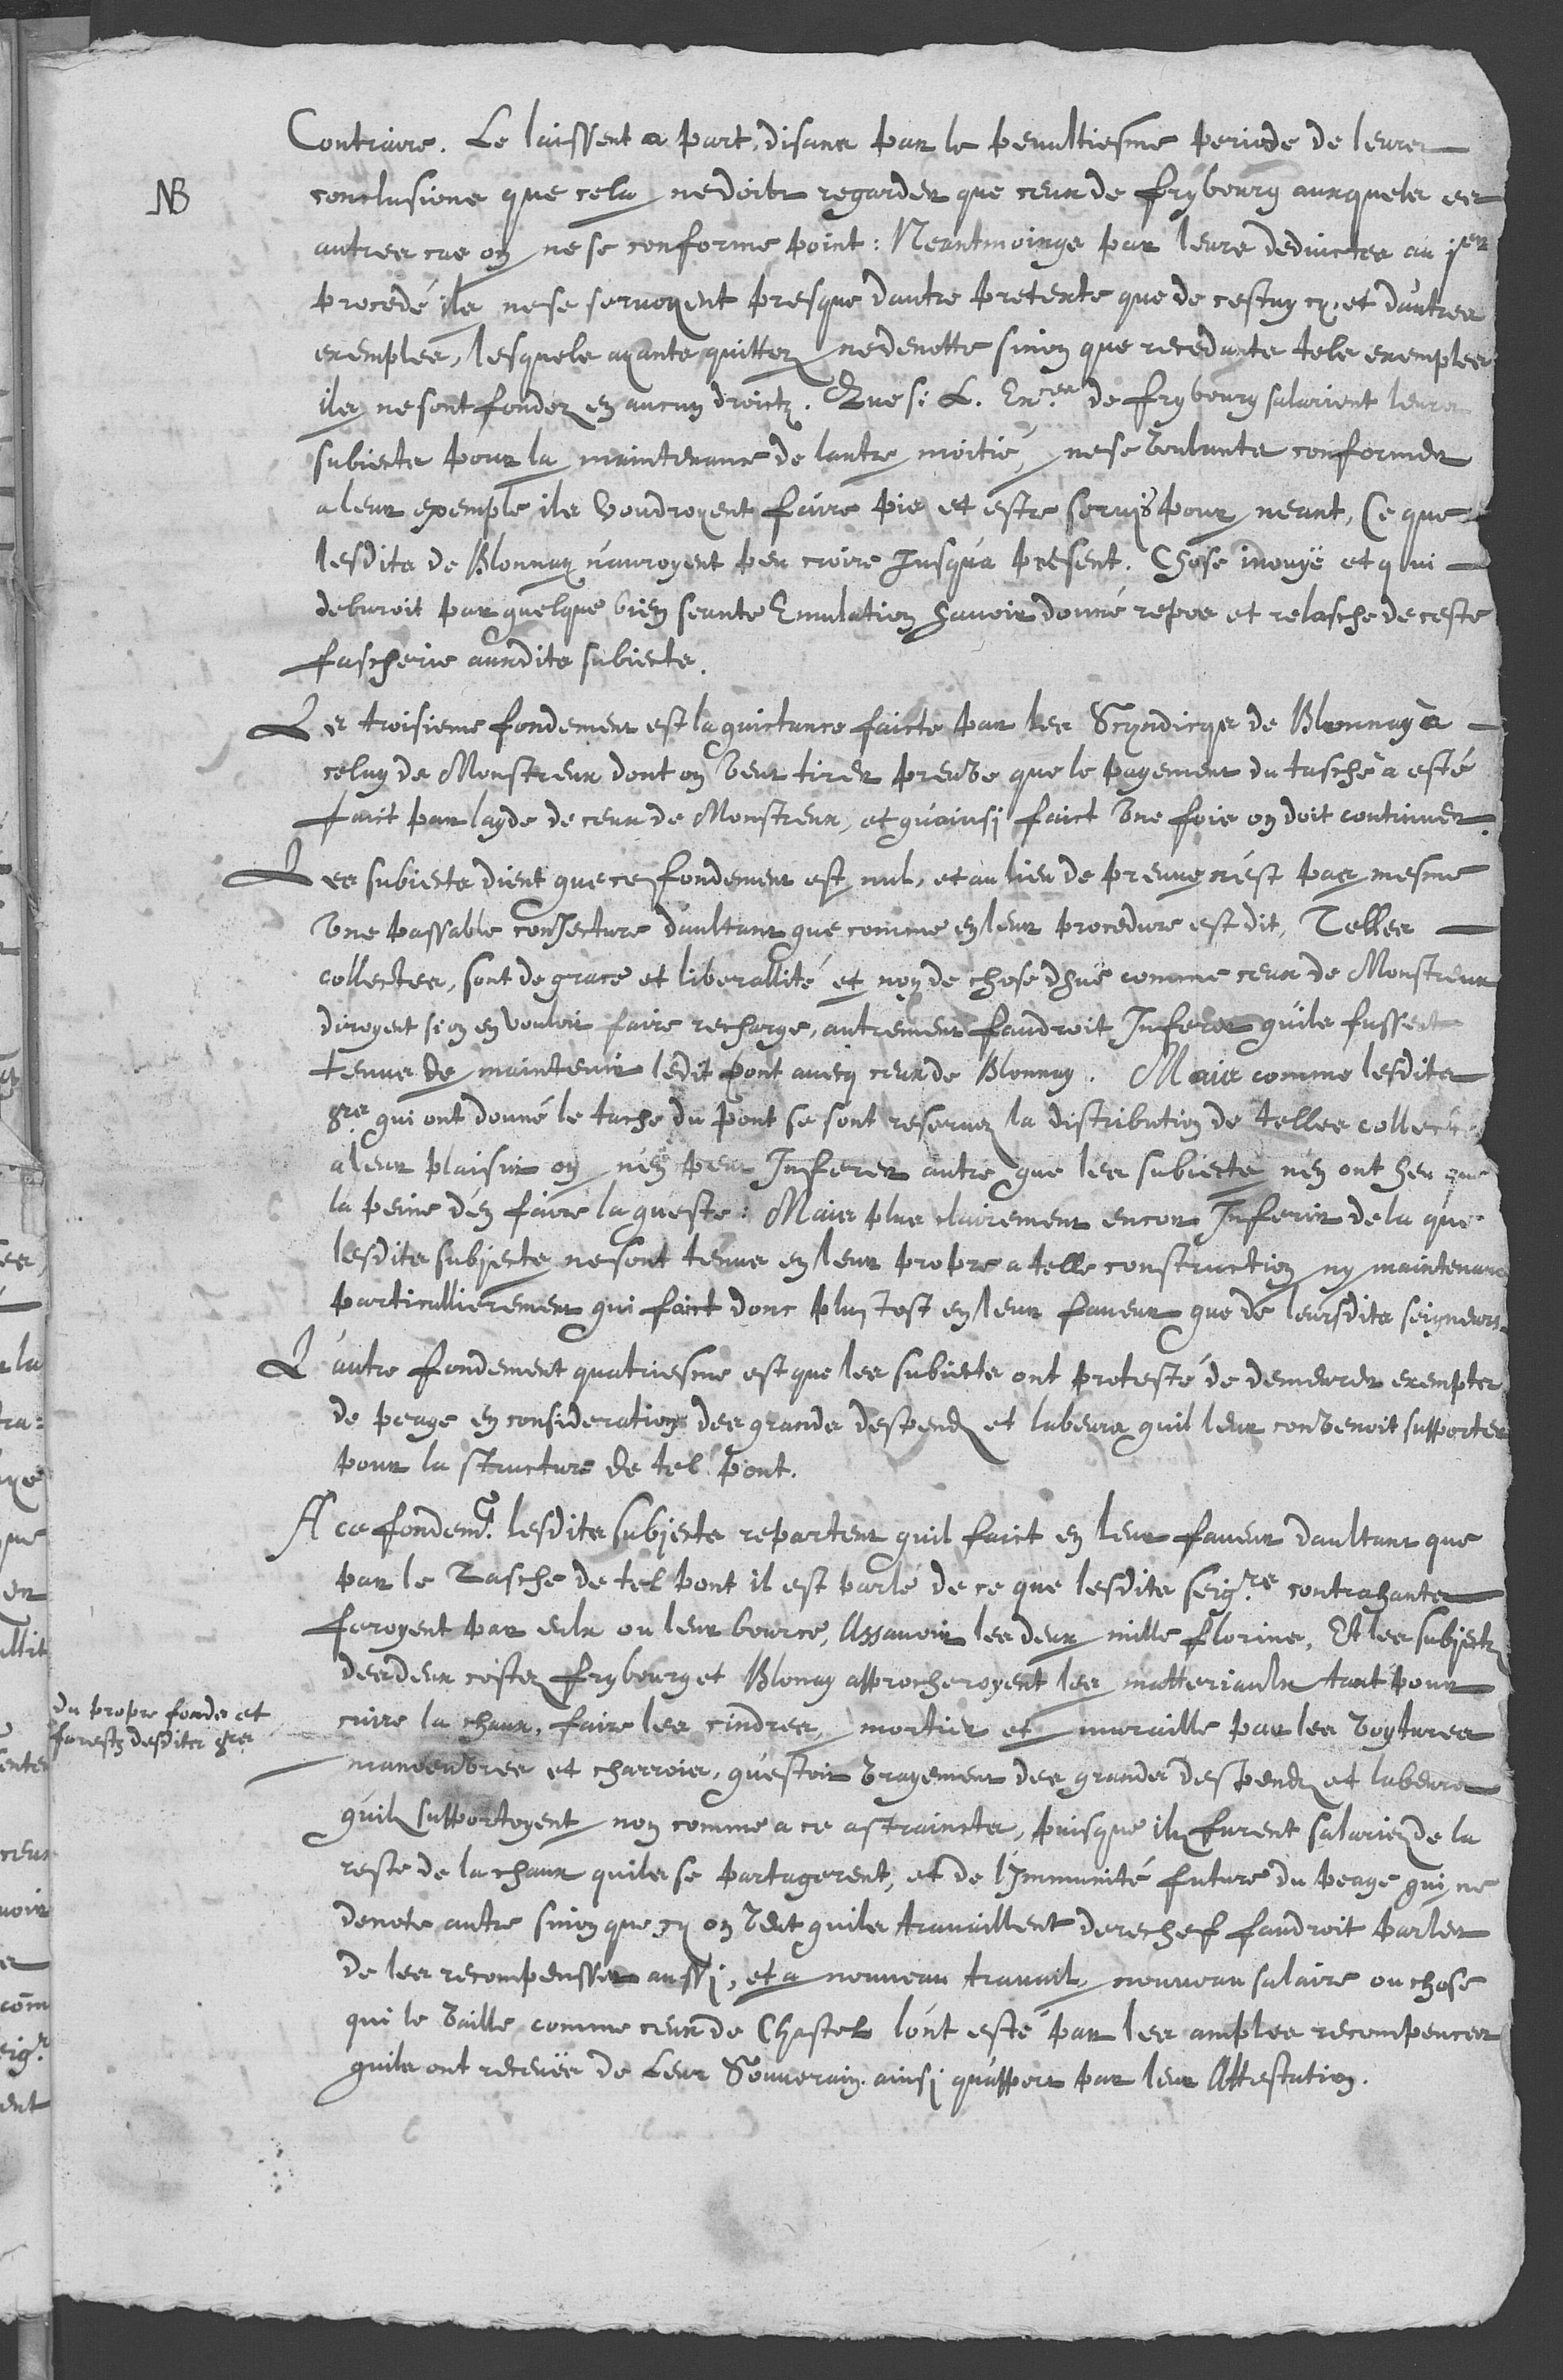 Contraire. Le laissent a part, disans par le penultiesme periode de leures
NB
conclusions que cela ne doibt regarder que ceux de frybourg auxquels es
autres cas on ne se conforme point : Neantmoings par leurs deduictes au 1er
procedé ils ne se servoyent presque dautre pretexte que de cestuy cy, et dautres
exemples, lesquels ayants quittez ne denotte sinon que recedants tels exemples
ils ne sont fondez en aucun droictz. Que si L. Exces de frybourg salarient leurs
subiects pour la maintenance de lautre moitié, ne se voulants conformer
a leur exemple ils voudroyent faire pis et estre servis pour neant, Ce que
lesdits de Blonnay n'auroyent peu croire Jusqu'a present. Chose inouyë et qui
debvroit par quelque bien seante Emulation havoir donné repos et relasche de ceste
fascherie auxdits subiects.
Le troisieme fondement est la quictance faicte par les Scyndicqs de Blonnay à
celuy de Monstreux dont on veut tirer preuve que le payement du tasche a esté
faict par layde de ceux de Monstreux, et qu'ainsi faict une fois on doit continuer.
Les subiects dient que ce fondement est nul, et au lieu de preuve n'est pas mesme
une passable conjecture daultant que comme en leur procedure est dit, Telles
collectes, sont de grace et liberallité et non de chose dhuë comme ceux de Monstreux
diroyent si on en vouloit faire recharge, autrement faudroit Inferer qu'ils fussent
tenus de maintenir ledit pont avecq ceux de Blonnay. Mais comme lesdits
grs qui ont donné le tache du pont se sont reservez la distribution de telles collectes
a leur plaisir on n'en peut Inferer autre que les subiects n'en ont heu que
la peine d'en faire la queste : Mais plus clairement encor Inferir de la que
lesdits subjects ne sont tenus en leur propre a telle construction ny maintenance
particullierement qui faict donc plustost en leur faveur que de leursdits seigneurs.
L'autre fondement quatriesme est que les subiects ont protesté de demeurer exempts
de peage en consideration des grands despends et labeurs quil leur convenoit supporter
pour la structure de tel pont.
A ce fondemt. lesdits subjects repartent quil faict en leur faveur daultant que
par le Tasche de tel pont il est parlé de ce que lesdits seigrs contrahants
feroyent par eulx ou leur bource, Assavoir les deux mille florins, Et les subjects
des deux costez frybourg et Blonay approcheroyent les matteriaulx tant pour
du propre fonds et
forestz desdits grs
cuire la chaux, faire les cindres, mortier et muraille par les voytures
manoeuvres et charrois, qu'estoit vrayement des grands despends et labeurs
qu'ilz supportoyent non comme a ce astraincts, puisque ilz furent salariez de la
reste de la chaux quils se partagerent, et de l'Immunité future du peage qui ne
denote autre sinon que sy on veut quils travaillent derechef faudroit parler
de les recompensser aussi, et a nouveau travail, nouveau salaire ou chose
qui le vaille comme ceux de Chastel lont esté par les amples recompences
quils ont receuës de Leur Souverain. ainsi qu'appert par leur Attestation.